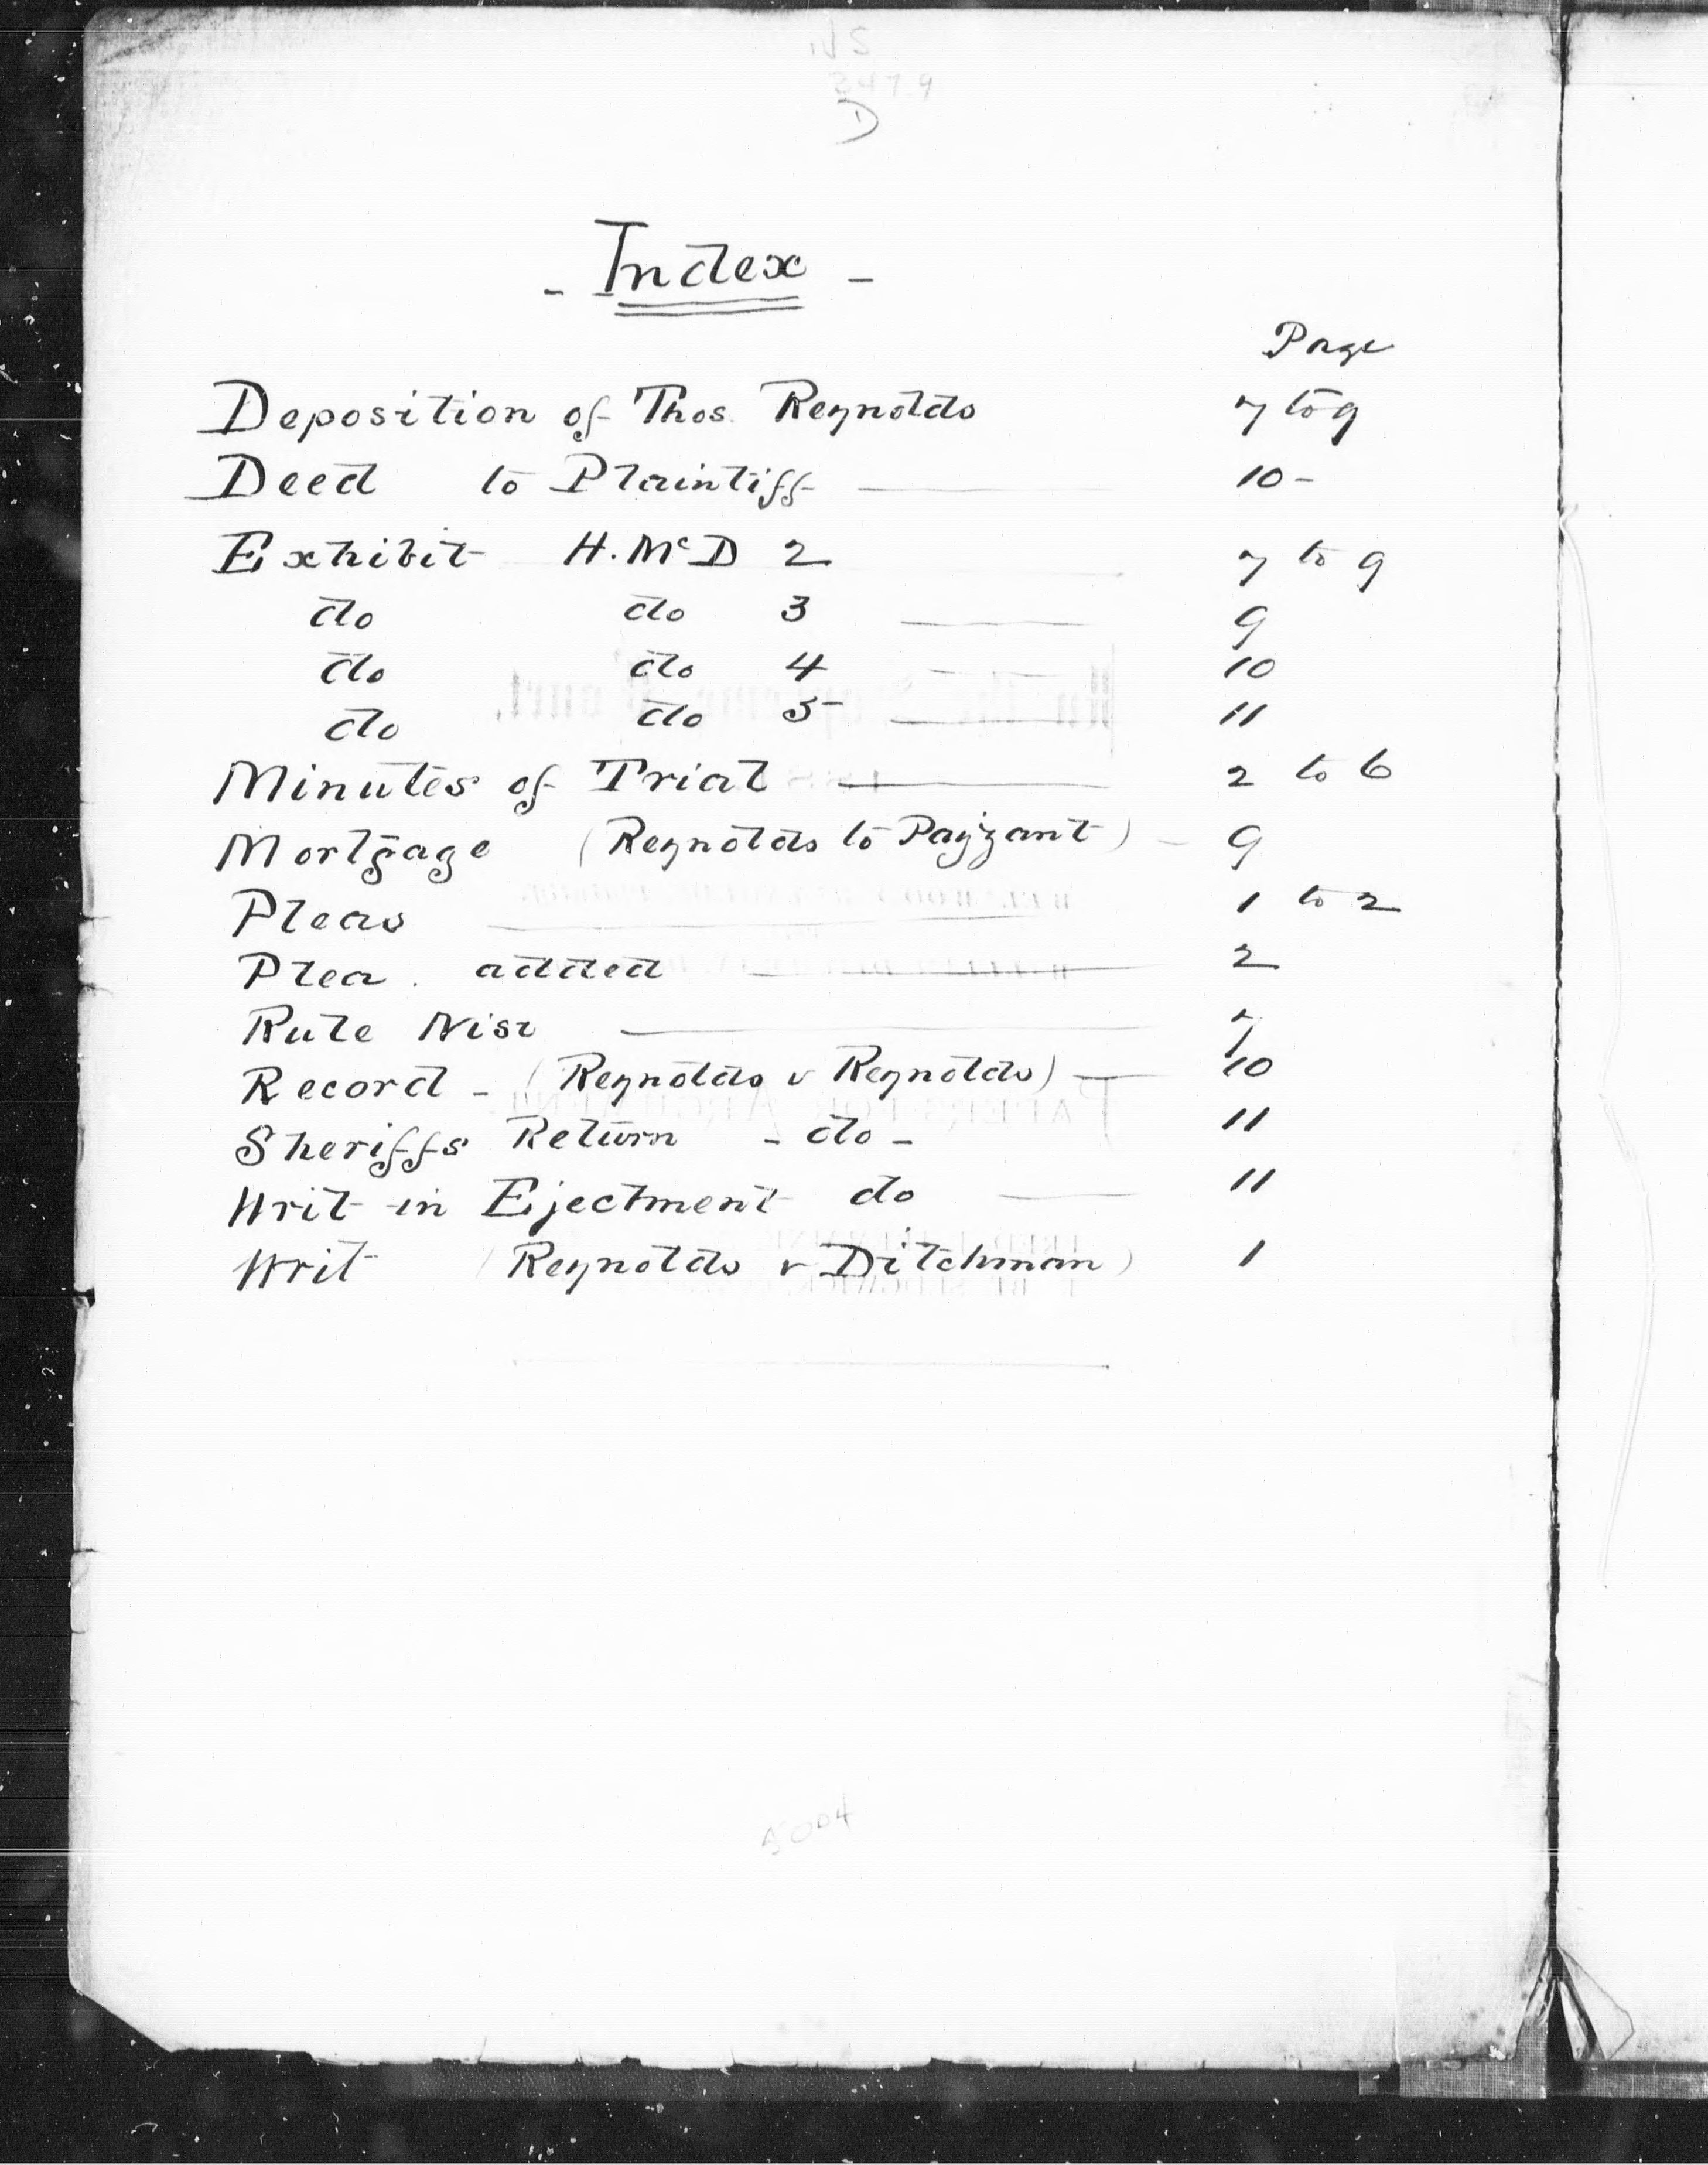 NS
347.9
D
- Index -
Page
Deposition of Thos. Reynolds 7 to 9
Deed to Plaintiff — 10-
Exhibit H. McD 2 7 to 9
do do 3 — 9
do do 4 — 10
do do 5 — 11
Minutes of Trial — 2 to 6
Mortgage (Reynolds to Payzant) - 9
Pleas — 1 to 2
Plea. added — 2
Rule Nisi — 7
Record - (Reynolds v Reynolds) — 10
Sheriffs Return - do - 11
Writ in Ejectment do — 11
Writ (Reynolds v Ditchman) 1
5004